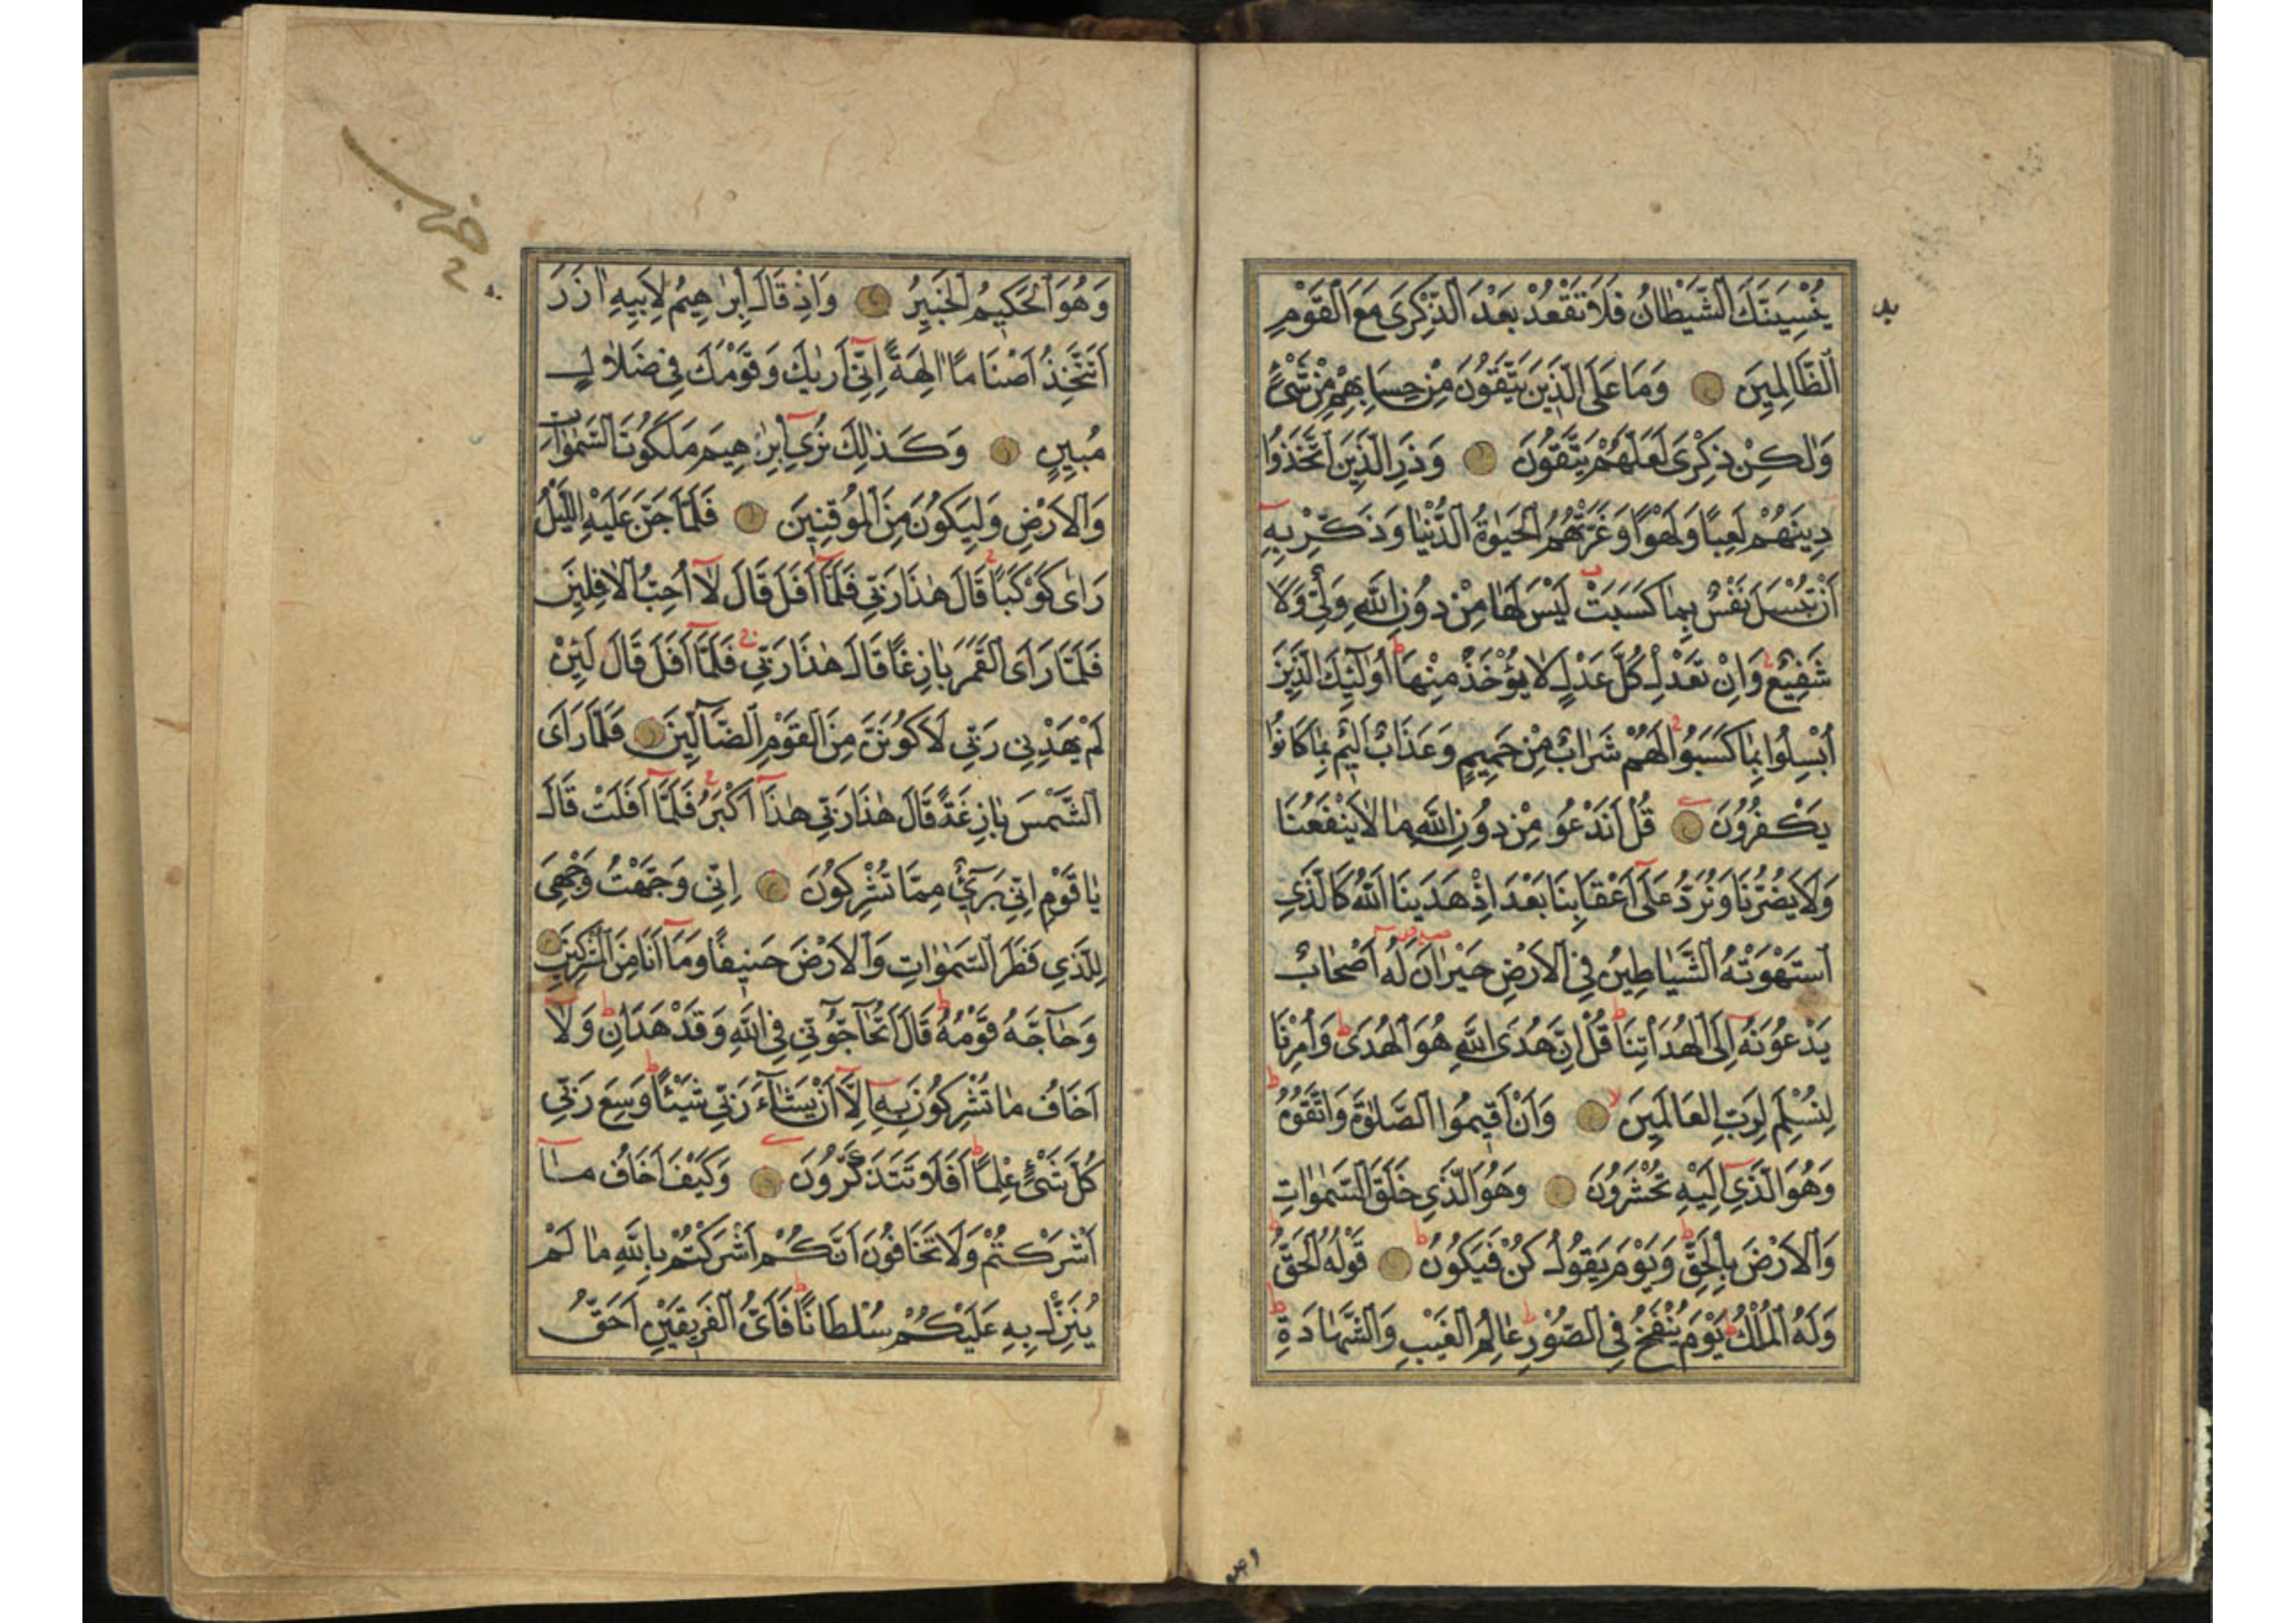 يُنْسِيَنَّكَ الشَّيْطَانُ فَلَا تَقْعُدْ بَعْدَ الذِّكْرَى مَعَ الْقَوْمِ
الظَّالِمِينَ وَمَا عَلَى الَّذِينَ يَتَّقُونَ مِنْ حِسَابِهِمْ مِنْ شَيْءٍ
وَلٰكِنْ ذِكْرَى لَعَلَّهُمْ يَتَّقُونَ وَذَرِ الَّذِينَ اتَّخَذُوا
دِينَهُمْ لَعِبًا وَلَهْوًا وَغَرَّتْهُمُ الْحَيٰوةُ الدُّنْيَا وَذَكِّرْ بِهِ
أَنْ تُبْسَلَ نَفْسٌ بِمَا كَسَبَتْ لَيْسَ لَهَا مِنْ دُونِ اللّٰهِ وَلِيٌّ وَلَا
شَفِيعٌ وَاِنْ تَعْدِلْ كُلَّ عَدْلٍ لَا يُؤْخَذْ مِنْهَا اُولٰئِكَ الَّذِينَ
اُبْسِلُوا بِمَا كَسَبُوا لَهُمْ شَرَابٌ مِنْ حَمِيمٍ وَعَذَابٌ اَلِيمٌ بِمَا كَانُوا
يَكْفُرُونَ قُلْ اَنَدْعُو مِنْ دُونِ اللّٰهِ مَا لَا يَنْفَعُنَا
وَلَا يَضُرُّنَا وَنُرَدُّ عَلَى اَعْقَابِنَا بَعْدَ اِذْ هَدَينَا اللّٰهُ كَالَّذِي
اسْتَهْوَتْهُ الشَّيَاطِينُ فِي الْاَرْضِ حَيْرَانَ لَهُ اَصْحَابٌ
يَدْعُونَهُ اِلَى الْهُدَى ائْتِنَا قُلْ اِنَّ هُدَى اللّٰهِ هُوَ الْهُدَى وَاُمِرْنَا
لِنُسْلِمَ لِرَبِّ الْعَالَمِينَ وَاَنْ اَقِيمُوا الصَّلٰوةَ وَاتَّقُوهُ
وَهُوَ الَّذِي اِلَيْهِ تُحْشَرُونَ وَهُوَ الَّذِي خَلَقَ السَّمٰوَاتِ
وَالْاَرْضَ بِالْحَقِّ وَيَوْمَ يَقُولُ كُنْ فَيَكُونُ قَوْلُهُ الْحَقُّ
وَلَهُ الْمُلْكُ يَوْمَ يُنْفَخُ فِي الصُّورِ عَالِمُ الْغَيْبِ وَالشَّهَادَةِ
وَهُوَ الْحَكِيمُ الْخَبِيرُ وَاِذْ قَالَ اِبْرٰهِيمُ لِاَبِيهِ اٰزَرَ
اَتَتَّخِذُ اَصْنَامًا اٰلِهَةً اِنِّي اَرٰيكَ وَقَوْمَكَ فِي ضَلَالٍ
مُبِينٍ وَكَذٰلِكَ نُرِي اِبْرٰهِيمَ مَلَكُوتَ السَّمٰوَاتِ
وَالْاَرْضِ وَلِيَكُونَ مِنَ الْمُوقِنِينَ فَلَمَّا جَنَّ عَلَيْهِ اللَّيْلُ
رَاٰى كَوْكَبًا قَالَ هٰذَا رَبِّي فَلَمَّا اَفَلَ قَالَ لَا اُحِبُّ الْاٰفِلِينَ
فَلَمَّا رَاَى الْقَمَرَ بَازِغًا قَالَ هٰذَا رَبِّي فَلَمَّا اَفَلَ قَالَ لَئِنْ
لَمْ يَهْدِنِي رَبِّي لَاَكُونَنَّ مِنَ الْقَوْمِ الضَّالِّينَ فَلَمَّا رَاَى
الشَّمْسَ بَازِغَةً قَالَ هٰذَا رَبِّي هٰذَا اَكْبَرُ فَلَمَّا اَفَلَتْ قَالَ
يَا قَوْمِ اِنِّي بَرِيءٌ مِمَّا تُشْرِكُونَ اِنِّي وَجَّهْتُ وَجْهِيَ
لِلَّذِي فَطَرَ السَّمٰوَاتِ وَالْاَرْضَ حَنِيفًا وَمَا اَنَا مِنَ الْمُشْرِكِينَ
وَحَاجَّهُ قَوْمُهُ قَالَ اَتُحَاجُّونِّي فِي اللّٰهِ وَقَدْ هَدَانِ وَلَا
اَخَافُ مَا تُشْرِكُونَ بِهِ اِلَّا اَنْ يَشَاءَ رَبِّي شَيْئًا وَسِعَ رَبِّي
كُلَّ شَيْءٍ عِلْمًا اَفَلَا تَتَذَكَّرُونَ وَكَيْفَ اَخَافُ مَا
اَشْرَكْتُمْ وَلَا تَخَافُونَ اَنَّكُمْ اَشْرَكْتُمْ بِاللّٰهِ مَا لَمْ
يُنَزِّلْ بِهِ عَلَيْكُمْ سُلْطَانًا فَاَيُّ الْفَرِيقَيْنِ اَحَقُّ